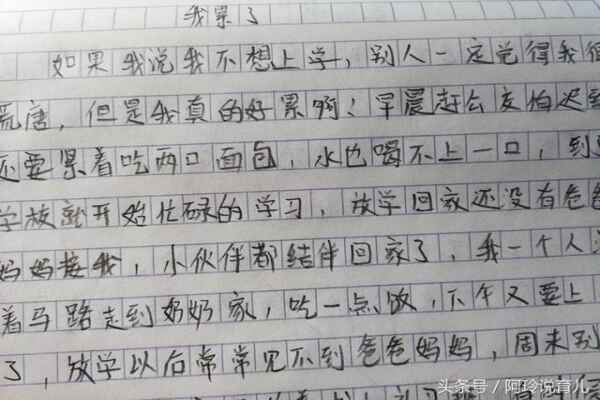 我累了
如果我说我不想上学，别人一定觉得我很
荒唐，但是我真的好累啊！早晨赶公交怕迟到
还要紧着吃两口面包，水也喝不上一口，到
学校就开始忙碌的学习，放学回家还没有爸爸
妈妈接我，小伙伴都结伴回家了，我一个人
着马路走到奶奶家，吃一点饭，下午又要上
了，放学以后常常见不到爸爸妈妈，周末别
头条号/阿玲说育儿